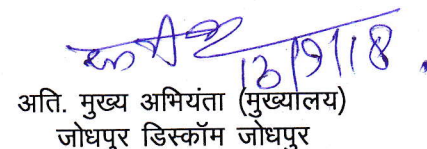 13/9/18.
अति. मुख्य अभियंता (मुख्यालय)
जोधपुर डिस्कॉम जोधपुर